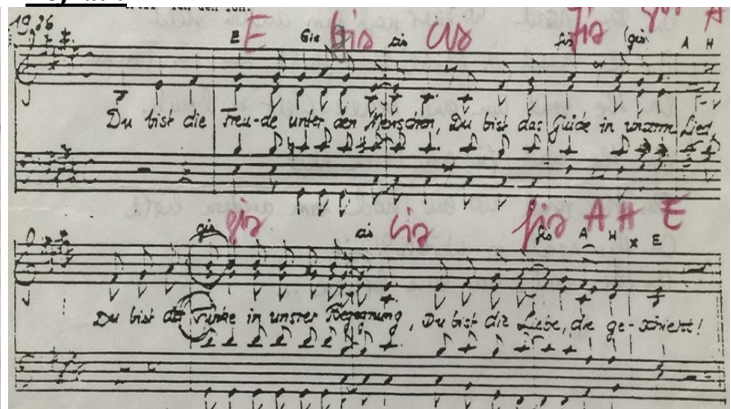 1936
E E Gis Gis cis cis fis fis (gis gis A H A
Du bist die Freu-de unter den Menschen, Du bist das Glück in unserm Lied,
gis gis cis cis fis fis A H E A H E
Du bist der Funke in unsrer Begegnung, Du bist die Liebe, die ge-schieht!